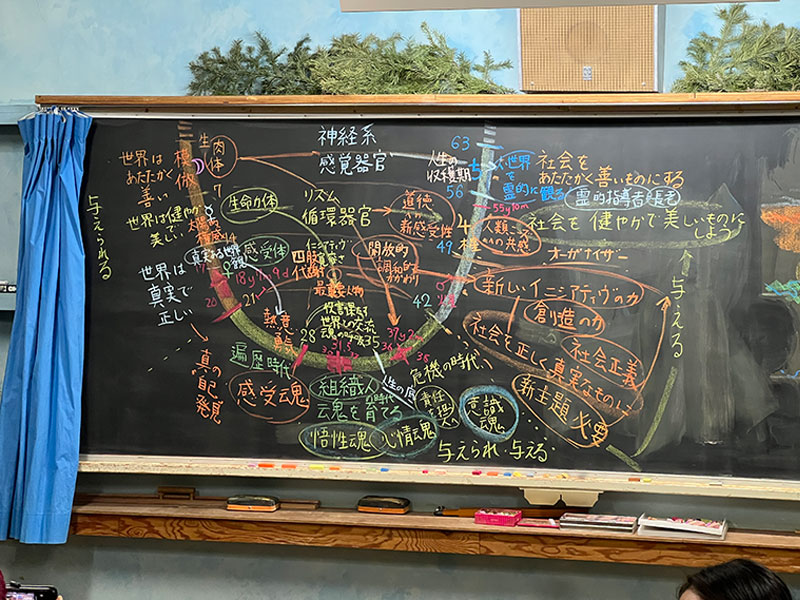 神経系
感覚器官
生
肉体
模倣
世界は
あたたかく
善い
7
生命力体
リズム
循環器官
世界は健やかで
美しい
与えられる
真実なる世界
感受体
四肢
代謝
世界は
真実で
正しい
18y7m9d
21
最重要な物
熱意
28
世界との交流
35
遍歴時代
真の
"自己"
発見
感受魂
組織人
の時代
魂を育てる
悟性魂
心情魂
意識
魂
与えられ・与える
危機の時代
人生の底
責任
37y2m
36
42
49
56
63
55y10m
人生の
収穫期
世界
を
霊的に観る
社会を
あたたかく善いものにする
霊的指導者
長老
道徳
新感受性
人類
への共感
社会を健やかで美しいものに
しよう
オーガナイザー
開放的
調和的な
かかわり
新しいイニシアティヴの力
創造の力
社会を正しく真実なものに
社会正義
新主題
必要
与える